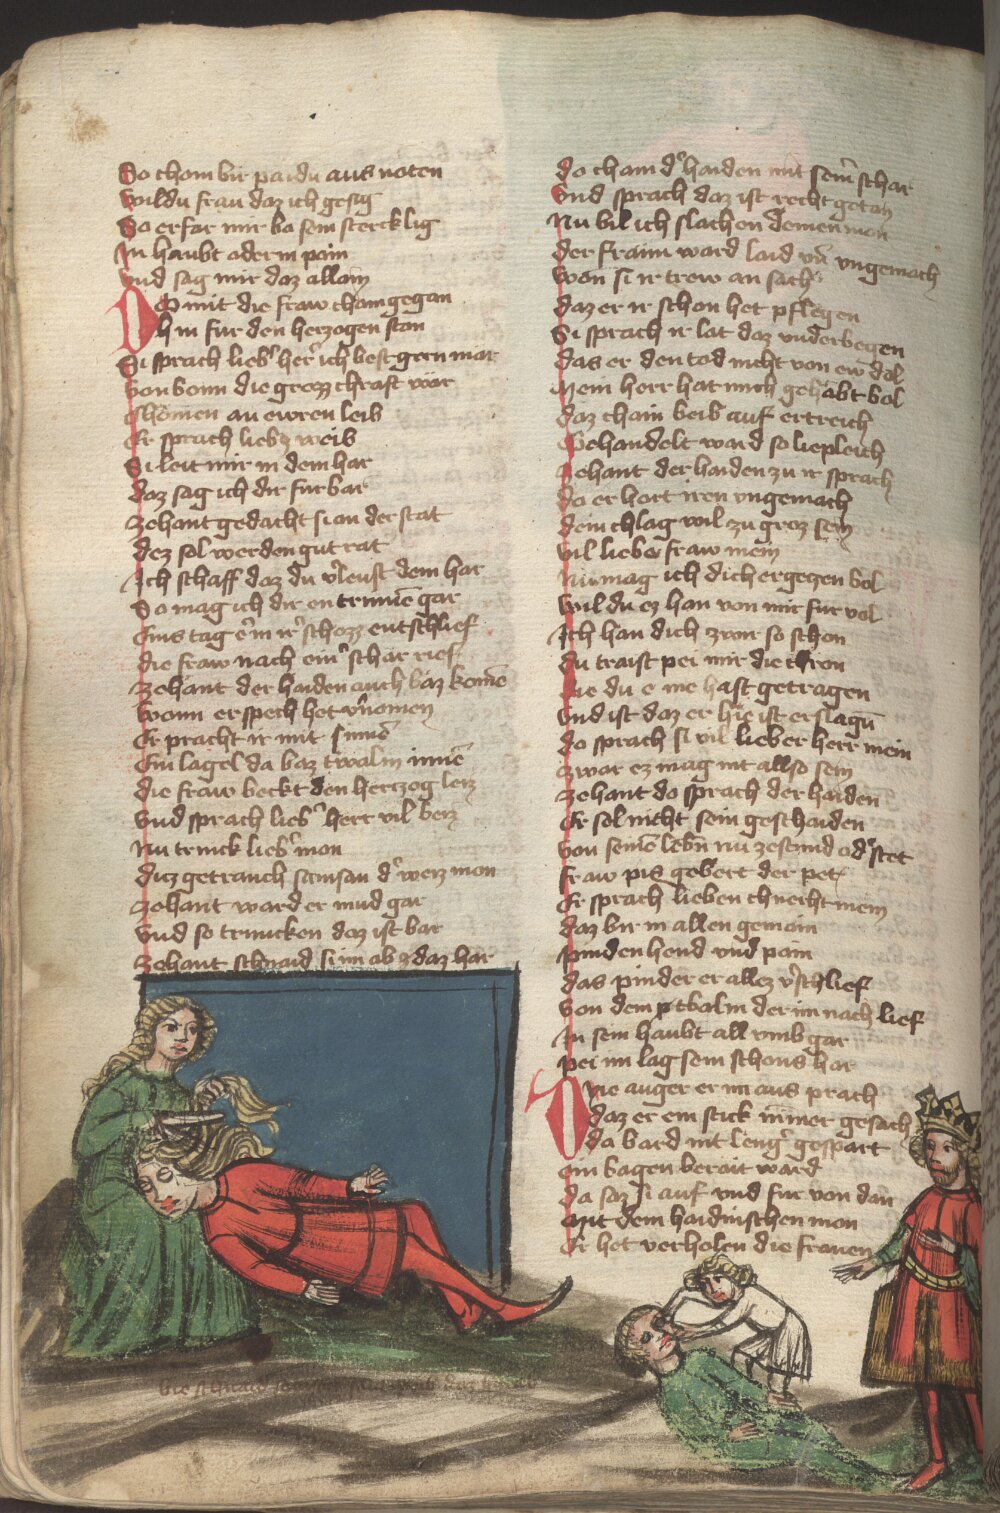 So chom bir paidu aus noten
wildu frau daz ich gesig
So erfar mir ba sein stercklig
In haubt oder in pain
vnd sag mir daz allain
Do mit die fraw cham gegan
Hin fur den herczogen stan
Si sprach lieb' her' ich best gern mar
von bonn die grozz chraft war
Chömen an ewren leib
Er sprach liebz weib
Si leit mir in dem har
daz sag ich dir fur bar
zehant gedacht si an der stat
dez sol werden gut rat
Ich schaff daz du v'leust dein har
So mag ich dir entrinnē gar
Eins tag e'in ir' schozz entschlief
die fraw nach ein' schar rief
zehant der haiden auch baz komē
wann er spech het v'nomen
Er pracht ir mit sinnē
Ein lagel da baz twalm innē
die fraw beckt den herczog leiz
vnd sprach lieb' herr vil beiz
Nu trinck lieb' mon
diz getranch samsan d' weiz mon
zehant ward er mud gar
vnd so trincken daz ist bar
zehant schnaid si im ab daz har
do cham d' haiden mit seim schar
vnd sprach daz ist recht getan
Nu bil ich slachen deinen mon
der frawn ward laid vn̄ vngemach
won si ir trew an sach
daz er ir schon het pflegen
Si sprach ir lat daz vnderbegen
das er den tod nicht von ew dol
Mein herr hat mich gehabt bol
daz chain beib auf ertreich
Gehandelt ward so liepleich
zehant der haiden zu ir sprach
do er hort iren vngemach
dein chlag wil zu groz sein
vil liebe fraw mein
Nu mag ich dich ergegen bol
wil du ez han von mir fur vol
Ich han dich zwir so schon
du traist pei mir die chron
die du e nie hast getragen
vnd ist daz er hie ist erslagē
do sprach si vil lieber herr mein
zwar ez mag nit allso sein
zehant do sprach der haiden
Er sol nicht sein geschaiden
von seinē lebn̄ nu zestund od' stet
fraw pis gebert der pet
Er sprach lieben chnecht mein
daz bir in allen gemain
pinden hend vnd pain
das pinder er allez v'schlief
von dem tbalm der im nach lief
In sein haubt all vmb gar
pei im lag sein schons har
Die auger er im aus prach
daz er ein stick nimer gesach
da bard nit leng' gespart
ain bagen berait ward
da saz si auf vnd fur von dan
Mit dem haidnischen mon
Er het verholen die frauen